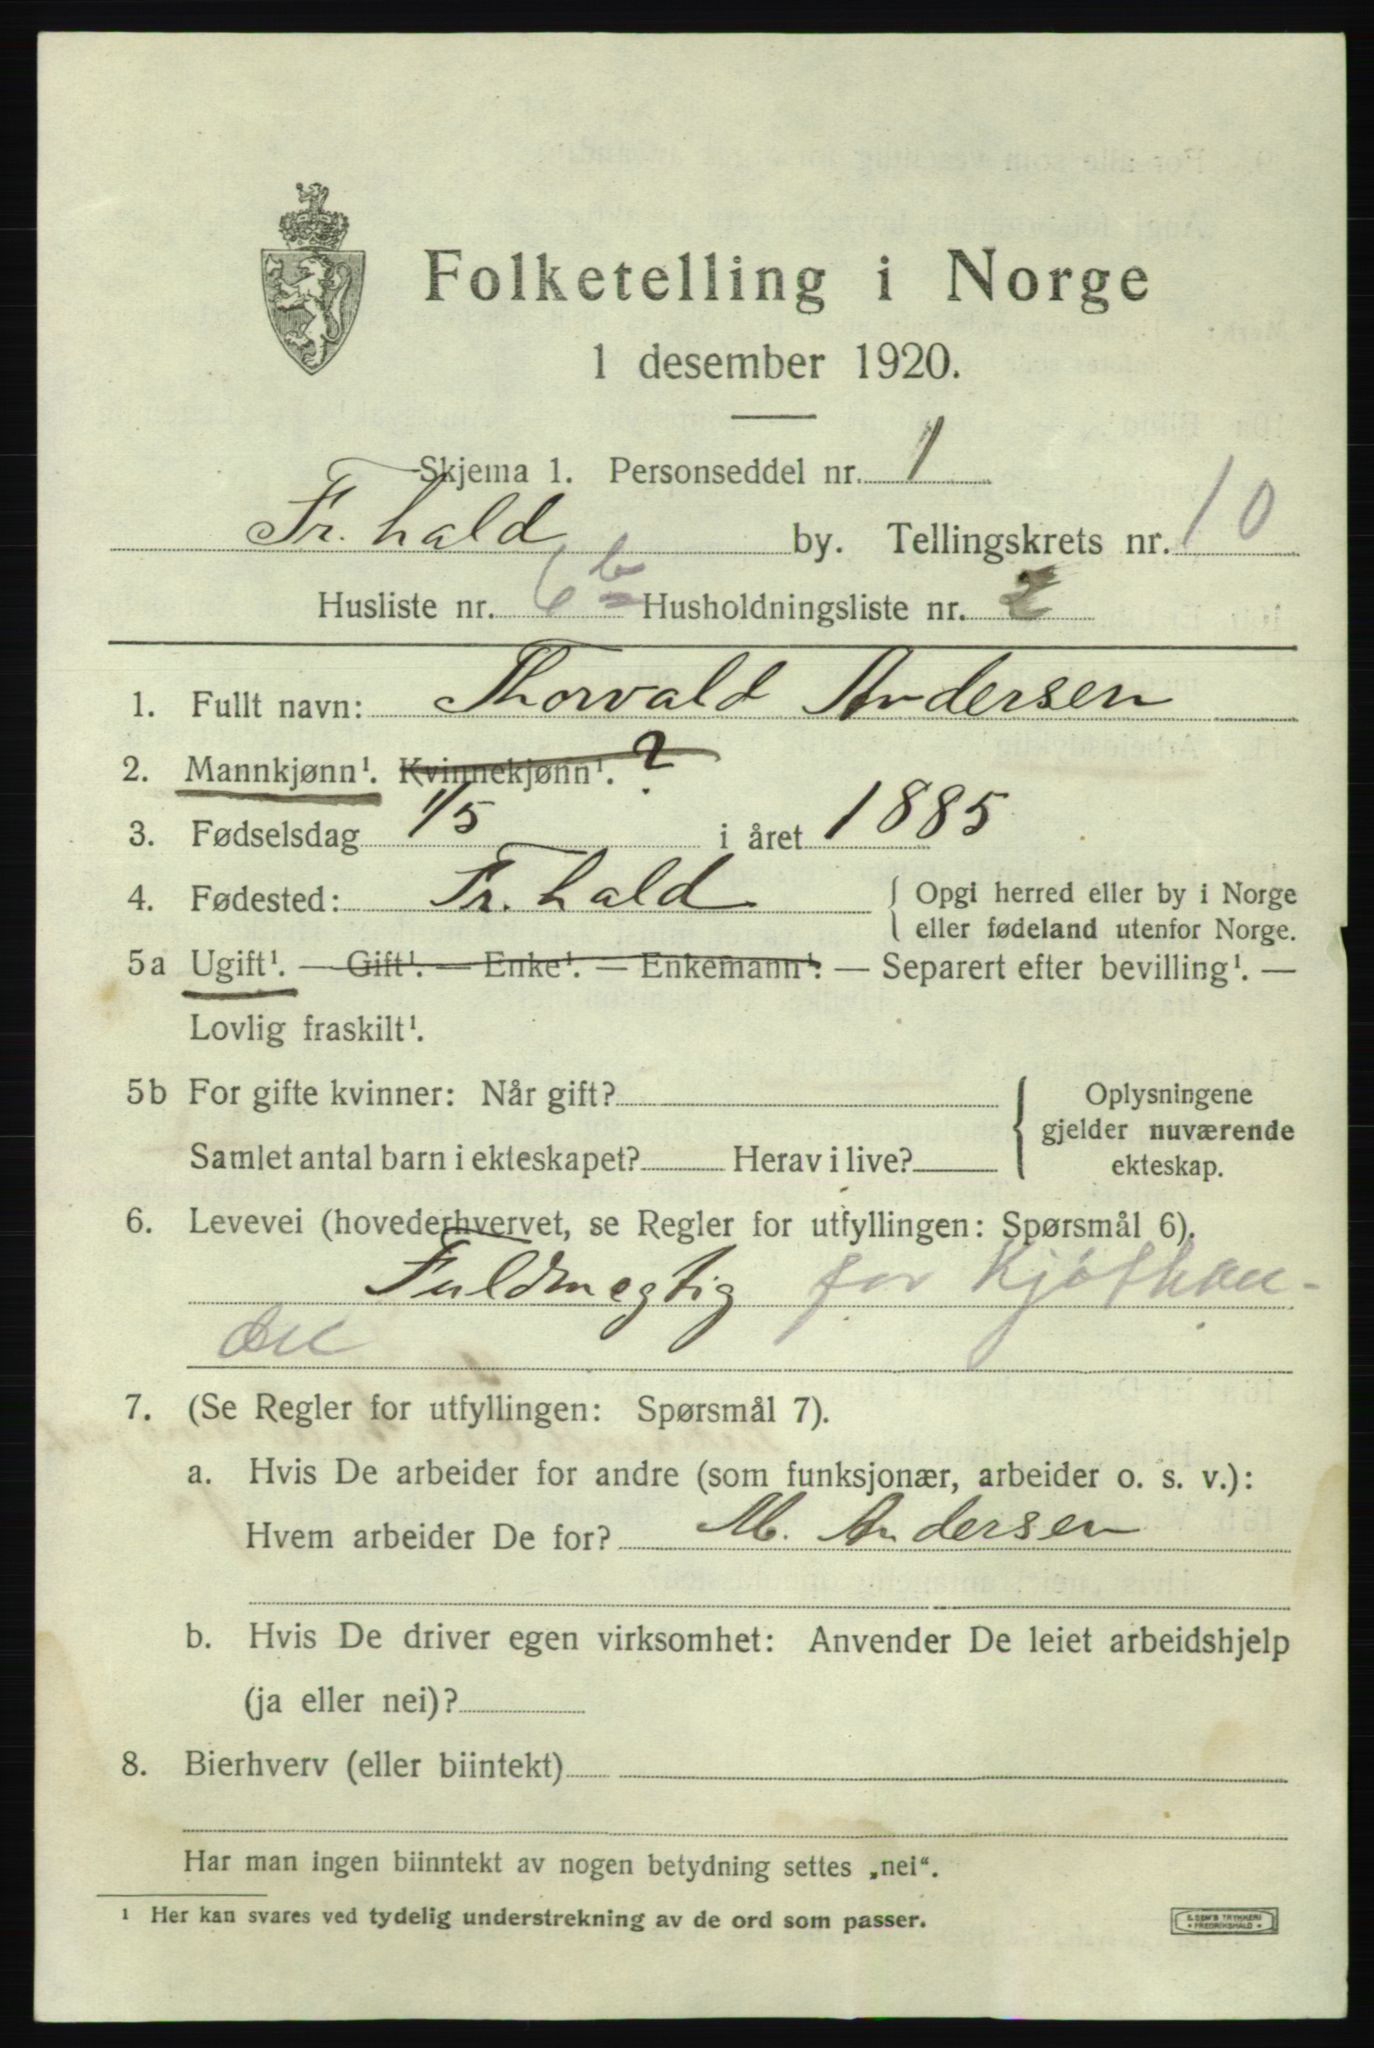 Folketelling i Norge
1 desember 1920.
Skjema 1. Personseddel nr. 1
Fr.hald by. Tellingskrets nr. 10
Husliste nr. 6b Husholdningsliste nr. 2
1. Fullt navn: Thorvald Andersen
2. Mannkjønn¹. Kvinnekjønn¹. ?
3. Fødselsdag 1/5 i året 1885
4. Fødested: Fr.hald { Opgi herred eller by i Norge
eller fødeland utenfor Norge.
5a Ugift¹. — Gift¹. — Enke¹. — Enkemann¹. — Separert efter bevilling¹. —
Lovlig fraskilt¹.
5b For gifte kvinner: Når gift?
Samlet antal barn i ekteskapet? Herav i live?
{ Oplysningene
gjelder nuværende
ekteskap.
6. Levevei (hovederhvervet, se Regler for utfyllingen: Spørsmål 6).
Fuldmegtig for Kjøthan-
del
7. (Se Regler for utfyllingen: Spørsmål 7).
a. Hvis De arbeider for andre (som funksjonær, arbeider o. s. v.):
Hvem arbeider De for? M. Andersen
b. Hvis De driver egen virksomhet: Anvender De leiet arbeidshjelp
(ja eller nei)?
8. Bierhverv (eller biintekt)
Har man ingen biinntekt av nogen betydning settes „nei“.
¹ Her kan svares ved tydelig understrekning av de ord som passer.
TRYKKERI
FREDRIKSHALD